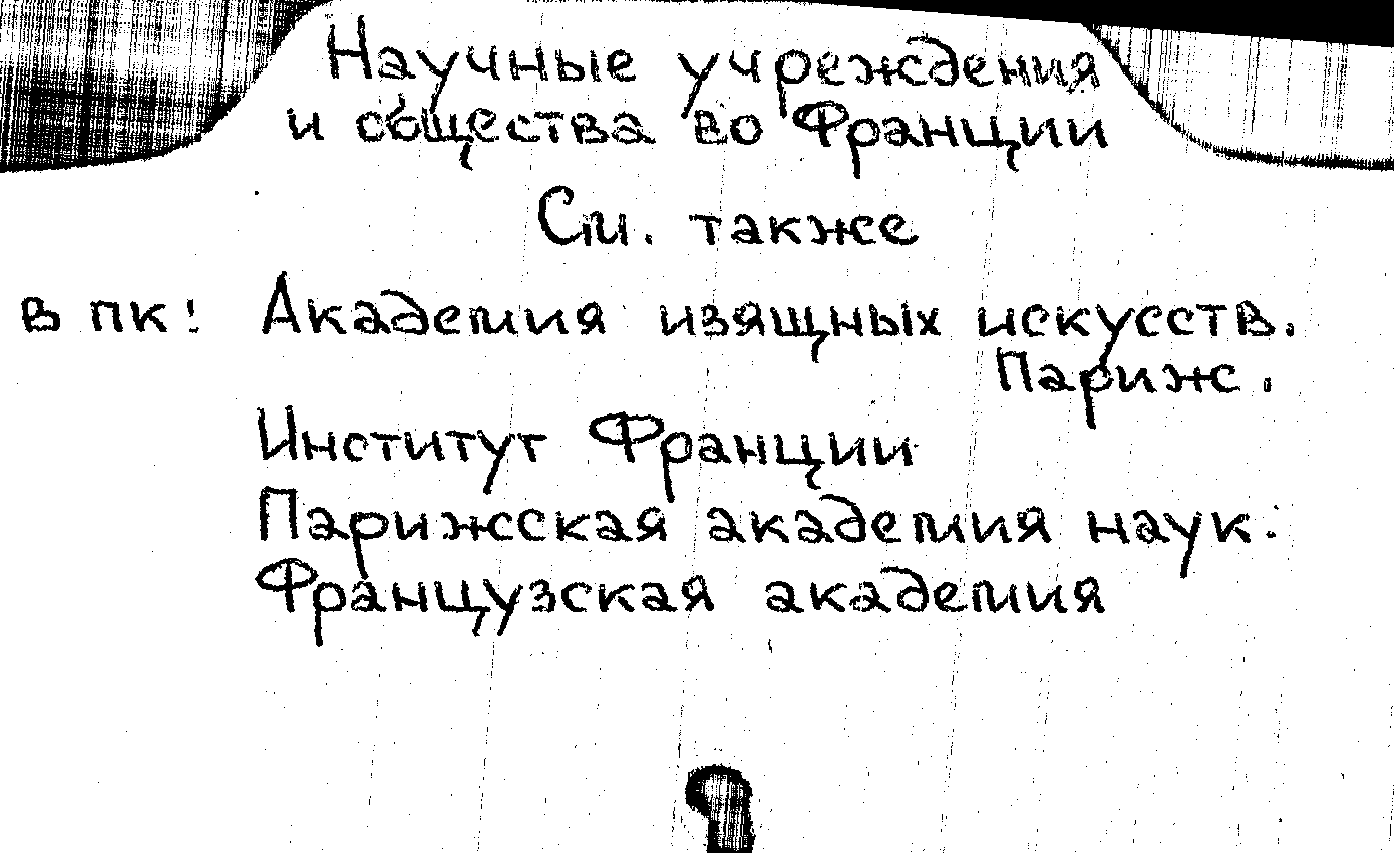 Научные учреждения
и общества во Франции
См. также
в пк! Академия изящных искусств.
Париж.
Институт Франции
Парижская академия наук.
Французская академия